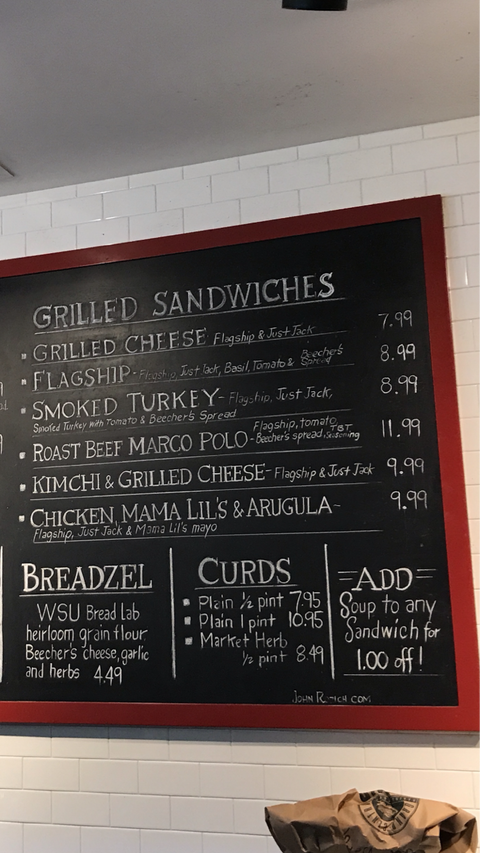 GRILLED SANDWICHES
GRILLED CHEESE Flagship & Just Jack 7.99
FLAGSHIP - Flagship, Just Jack, Basil, Tomato & Beecher's Spread 8.99
SMOKED TURKEY - Flagship, Just Jack, 8.99
Smoked Turkey with Tomato & Beecher's Spread
ROAST BEEF MARCO POLO - Flagship, tomato, 11.99
Beecher's spread, TBT Seasoning
KIMCHI & GRILLED CHEESE - Flagship & Just Jack 9.99
CHICKEN, MAMA LIL'S & ARUGULA - 9.99
Flagship, Just Jack & Mama Lil's mayo
BREADZEL
WSU Bread lab
heirloom grain flour
Beecher's cheese, garlic
and herbs 4.49
CURDS
Plain 1/2 pint 7.95
Plain 1 pint 10.95
Market Herb
1/2 pint 8.49
=ADD=
Soup to any
Sandwich for
1.00 off!
JOHN COM